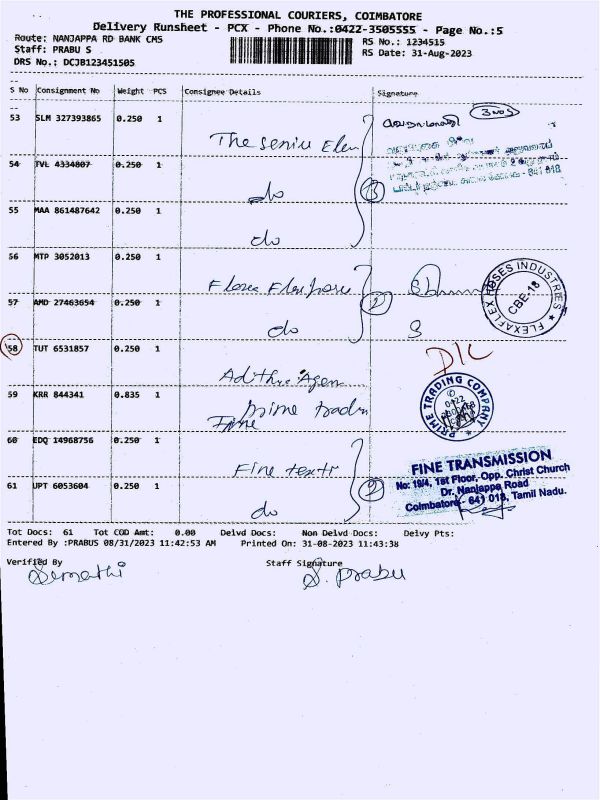 THE PROFESSIONAL COURIERS, COIMBATORE
Delivery Runsheet - PCX - Phone No.:0422-3505555 - Page No.:5
Route: NANJAPPA RD BANK CMS
RS No.: 1234515
Staff: PRABU S
RS Date: 31-Aug-2023
DRS No.: DCJB123451505
S No Consignment No Weight PCS Consignee Details Signature
53 SLM 327393865 0.250 1
3 nos
The Senior
54 TVL 4334807 0.250 1
do
13
641 018
55 MAA 861487642 0.250 1
do
56 MTP 3052013 0.250 1
Flexa
FLEXAFLEX HOSES INDUSTRIES
CBE-18
57 AMD 27463654 0.250 1
2
do
58 TUT 6531857 0.250 1
D/C
Adithya Agen
59 KRR 844341 0.835 1
Prime trader
PRIME TRADING COMPANY
0422
Fine
60 EDQ 14968756 0.250 1
Fine
FINE TRANSMISSION
No: 19/4, 1st Floor, Opp. Christ Church
Dr. Nanjappa Road
Coimbatore - 641 018, Tamil Nadu.
61 UPT 6053604 0.250 1
2
do
Tot Docs: 61 Tot COD Amt: 0.00 Delvd Docs: Non Delvd Docs: Delvy Pts:
Entered By :PRABUS 08/31/2023 11:42:53 AM Printed On: 31-08-2023 11:43:38
Verified By Staff Signature
S. Prabu